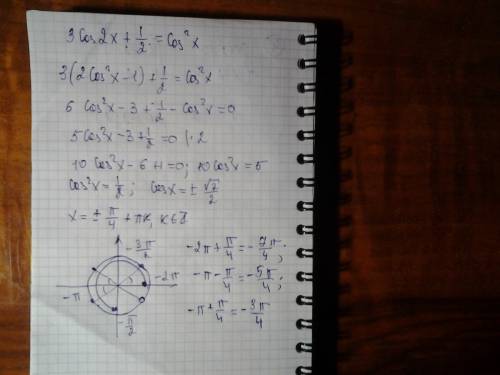 3 Cos2x + 1/2 = Cos²x
3(2Cos²x - 1) + 1/2 = Cos²x
6 Cos²x - 3 + 1/2 - Cos²x = 0
5Cos²x - 3 + 1/2 = 0 |· 2
10Cos²x - 6 + 1 = 0; 10Cos²x = 5
Cos²x = 1/2; Cosx = ± √2/2
x = ± π/4 + πk, k∈Z
-3π/2
-2π
-π
-π/2
-2π + π/4 = -7π/4;
-π - π/4 = -5π/4;
-π + π/4 = -3π/4